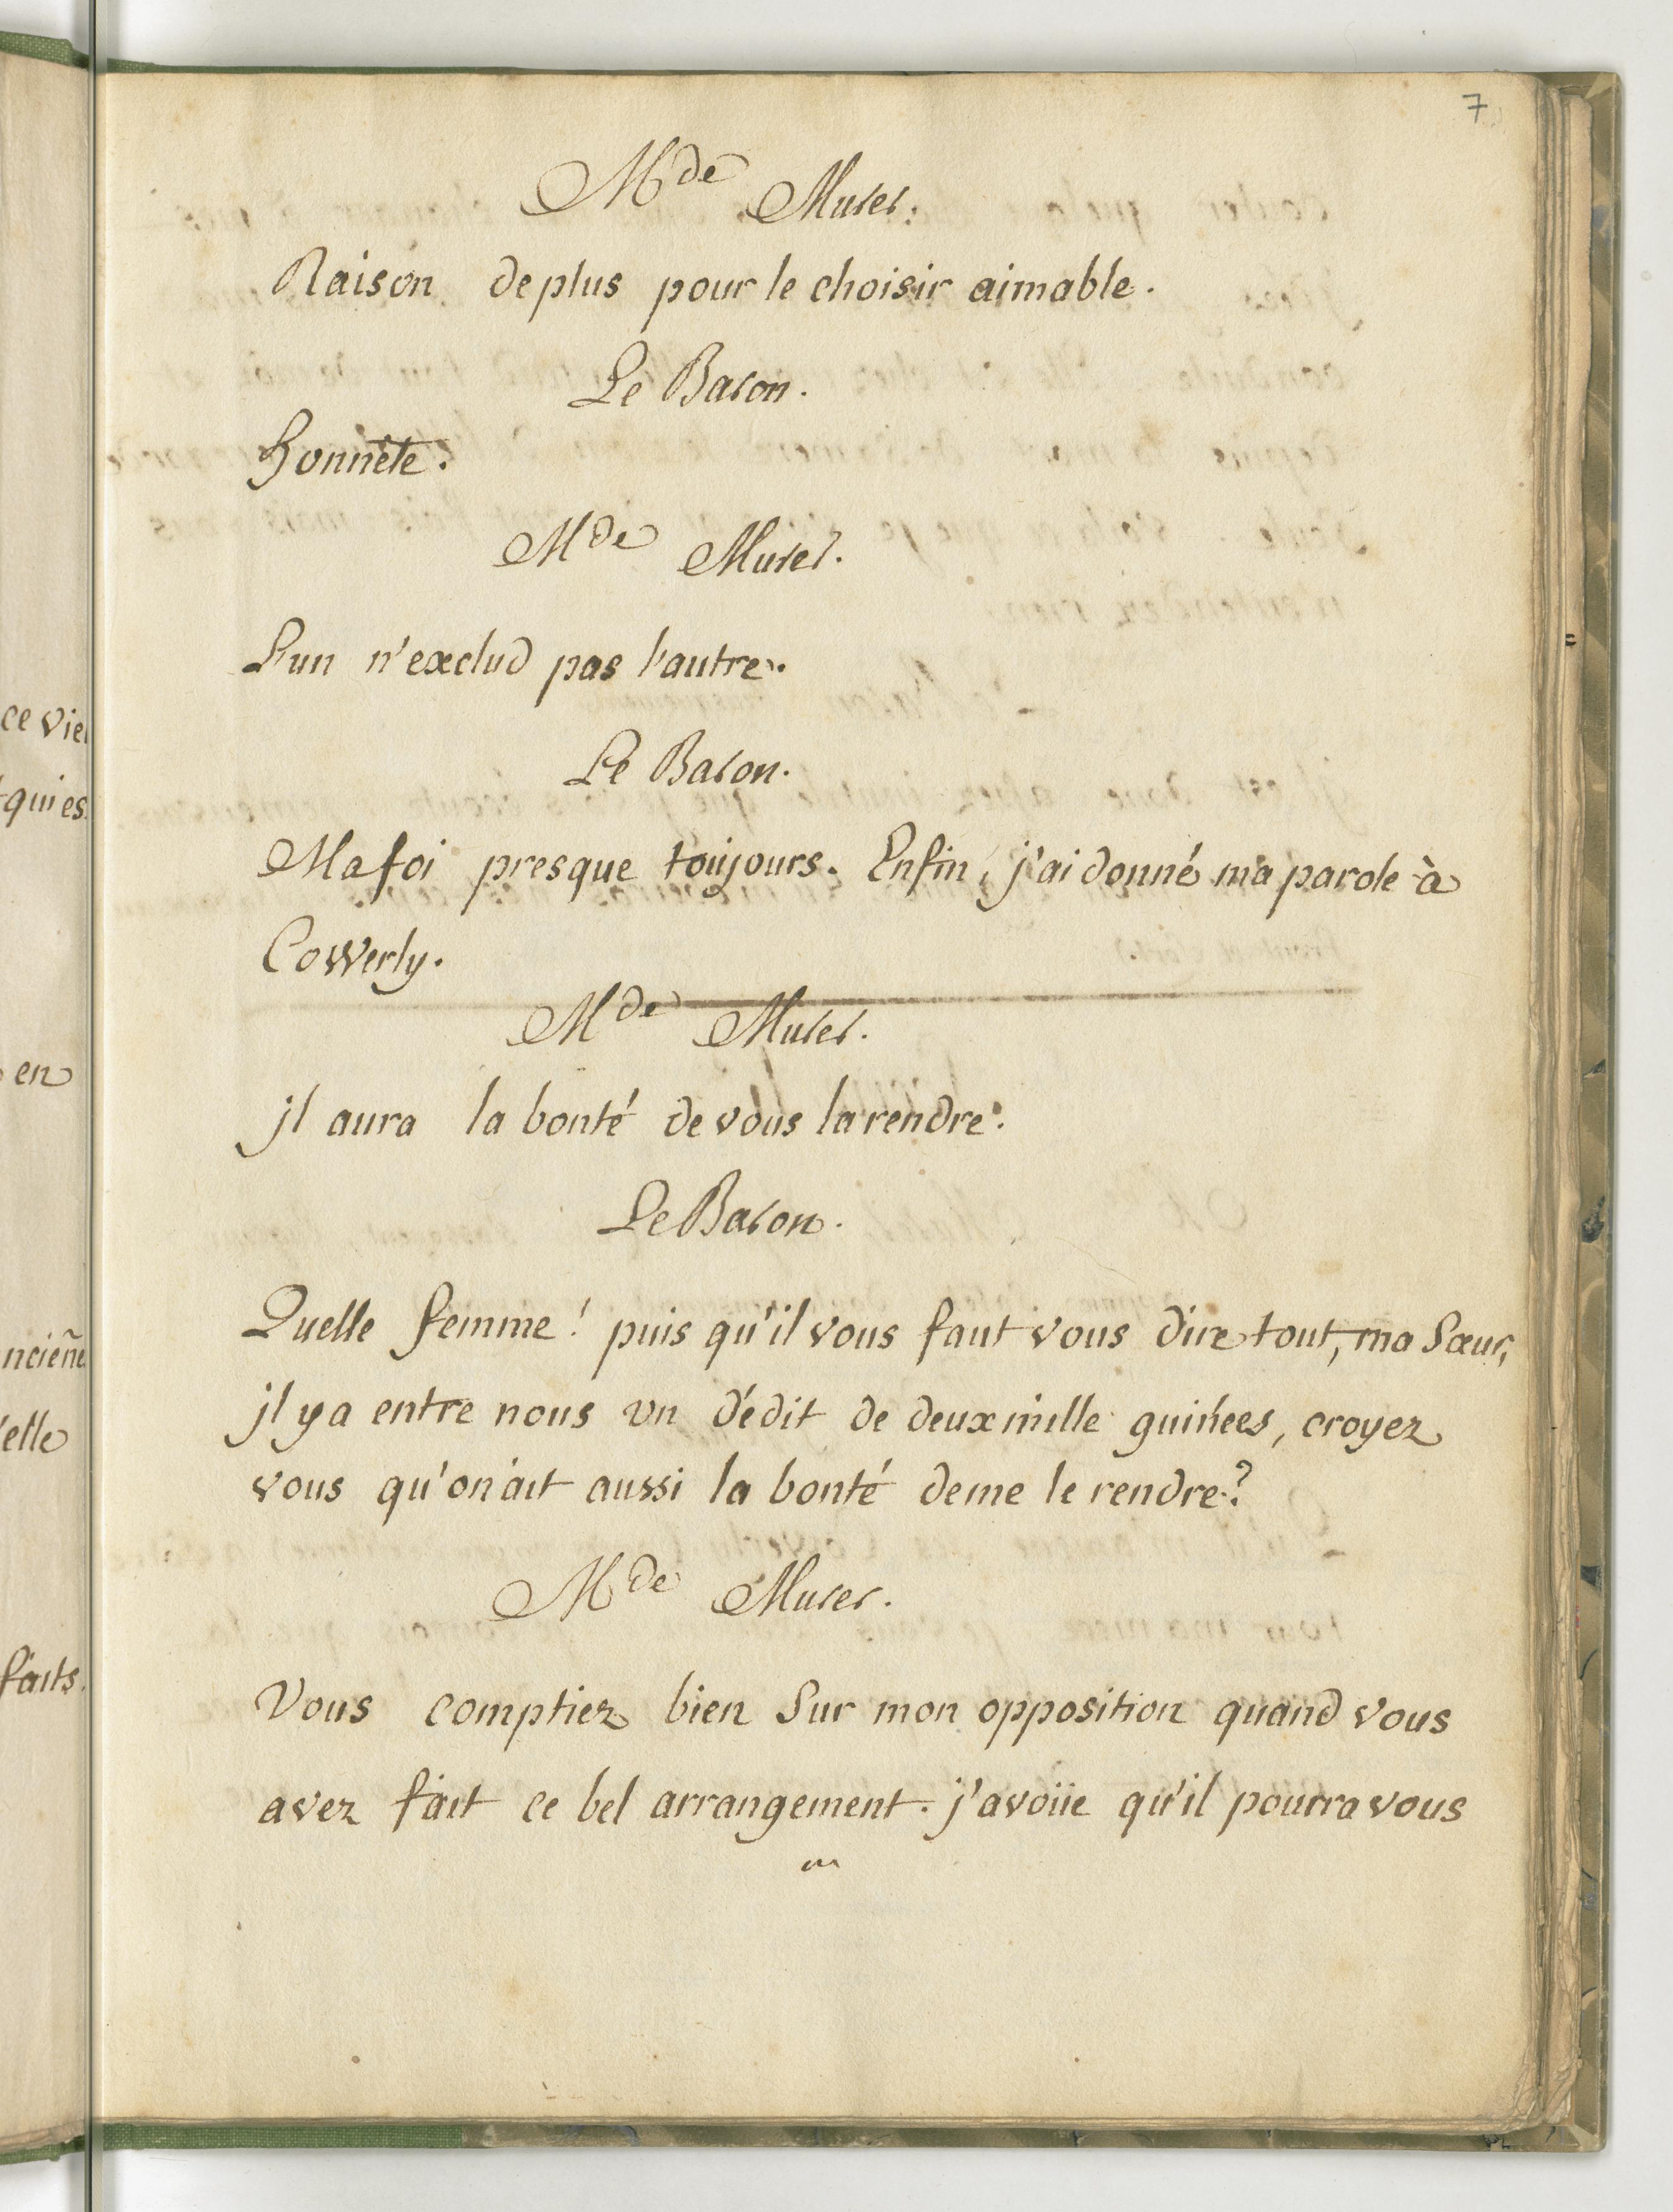 7
Mde Murer.
Raison de plus pour le choisir aimable.
Le Baron.
honnête.
Mde Murer.
L'un n'exclud pas l'autre.
Le Baron.
Ma foi presque toujours. Enfin, j'ai donné ma parole à
Cowerly.
Mde Murer.
jl aura la bonté de vous la rendre.
Le Baron.
Quelle femme! puis qu'il vous faut vous dire tout, ma Sœur,
jl y a entre nous un dédit de deux mille guinées, croyez
vous qu'on ait aussi la bonté de me le rendre?
Mde Murer.
Vous comptiez bien Sur mon opposition quand vous
avez fait ce bel arrangement. j'avoüe qu'il pourra vous
ce vie
qui es
en
ncieñe
elle
faits.